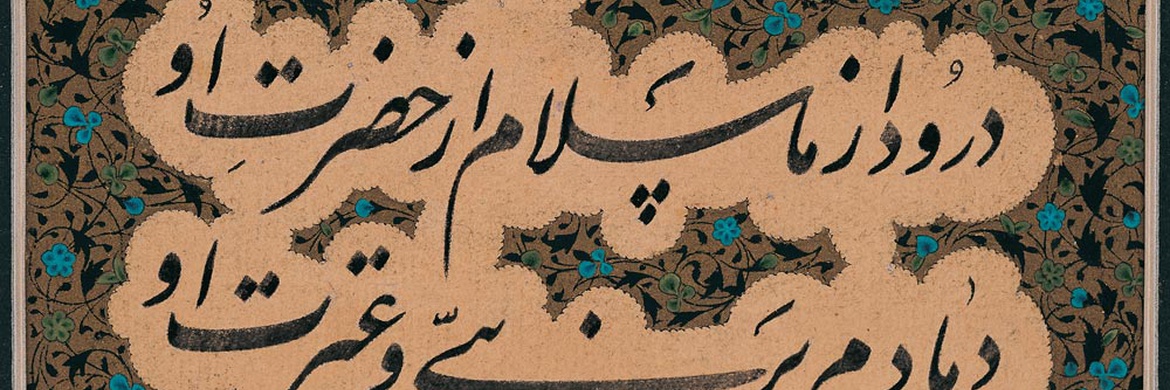 درود از ما سلام از حضرت او
دمادم بر نبی و عترت او